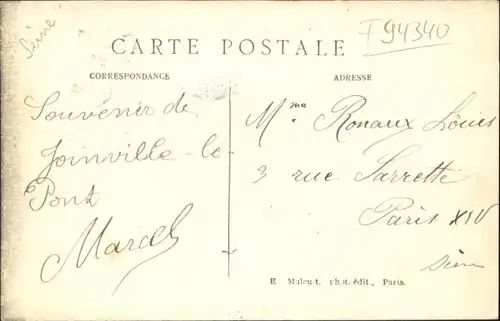 Seine
F 94340
CARTE POSTALE
CORRESPONDANCE
ADRESSE
Souvenir de
Joinville-le-
Pont
Marcel
Mme Ronaux Louis
3 rue Sarrette
Paris XIV
Seine
E Malcuit, Phot.édit., Paris.